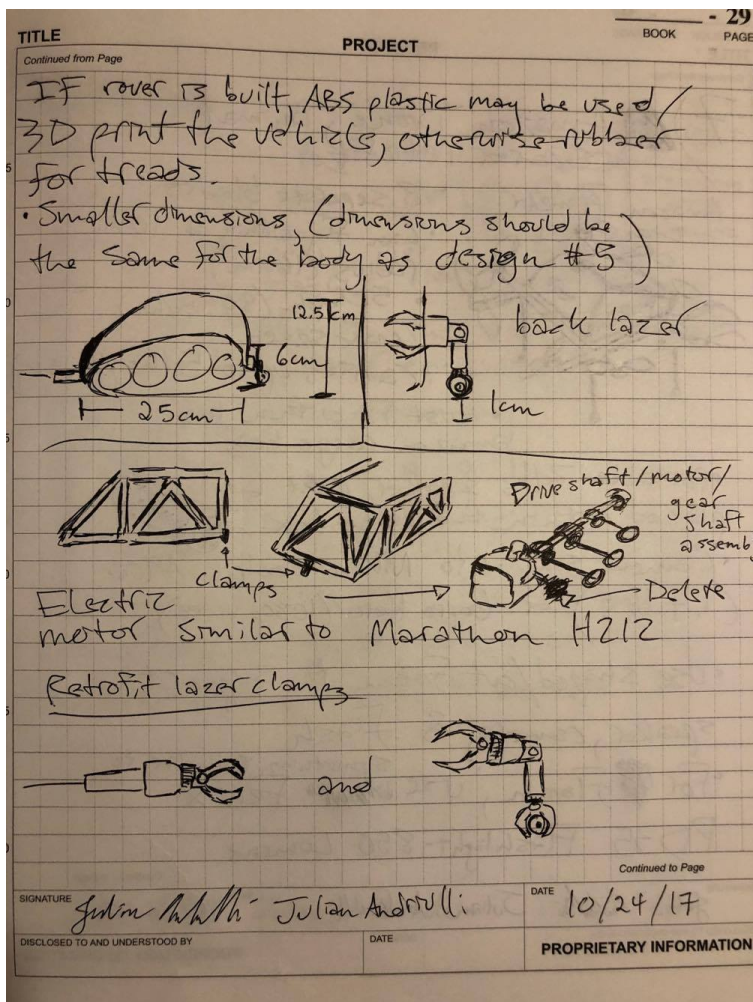 - 29
TITLE
PROJECT
BOOK
PAGE
Continued from Page
IF rover is built, ABS plastic may be used /
3D print the vehicle, otherwise rubber
for treads.
• Smaller dimensions, (dimensions should be
the same for the body as design #5)
12.5 cm
back lazer
6cm
25cm
1cm
Drive shaft/motor/
gear
shaft
assemb
clamps
Delete
Electric
motor similar to Marathon H212
Retrofit lazer clamps
and
Continued to Page
SIGNATURE
Julian Andriulli
DATE
10/24/17
DISCLOSED TO AND UNDERSTOOD BY
DATE
PROPRIETARY INFORMATION